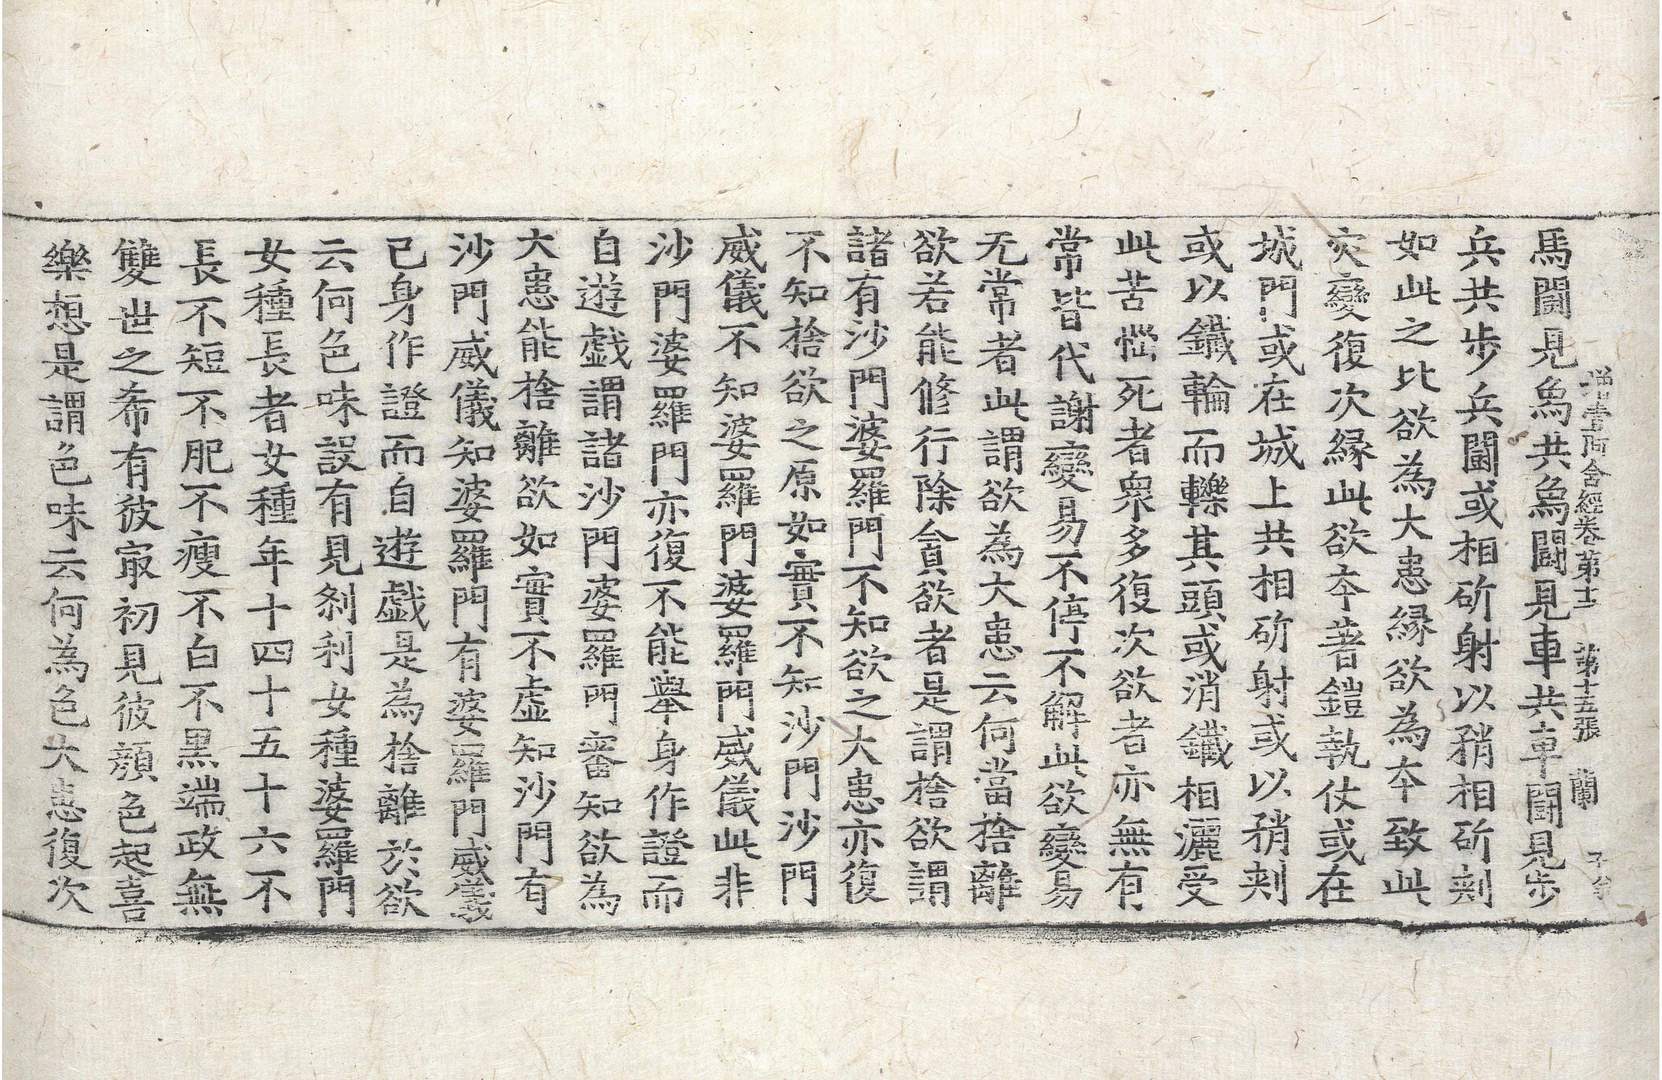 增壹阿含經卷第十二　第十五張　蘭
馬鬪見烏共烏鬪見車共車鬪見步
兵共步兵鬪或相斫射以矟相斫刾
如此之比欲為大患緣欲為夲致此
灾變復次緣此欲夲著鎧執仗或在
城門或在城上共相斫射或以矟刾
或以鐵輪而轢其頭或消鐵相灑受
此苦惱死者衆多復次欲者亦無有
常皆代謝變易不停不解此欲變易
无常者此謂欲為大患云何當捨離
欲若能修行除貪欲者是謂捨欲謂
諸有沙門婆羅門不知欲之大患亦復
不知捨欲之原如實不知沙門沙門
威儀不知婆羅門婆羅門威儀此非
沙門婆羅門亦復不能舉身作證而
自遊戲謂諸沙門婆羅門審知欲為
大患能捨離欲如實不虛知沙門有
沙門威儀知婆羅門有婆羅門威儀
己身作證而自遊戲是為捨離於欲
云何色味設有見剎利女種婆羅門
女種長者女種年十四十五十六不
長不短不肥不瘦不白不黑端政無
雙世之希有彼㝡初見彼顏色起喜
樂想是謂色味云何為色大患復次